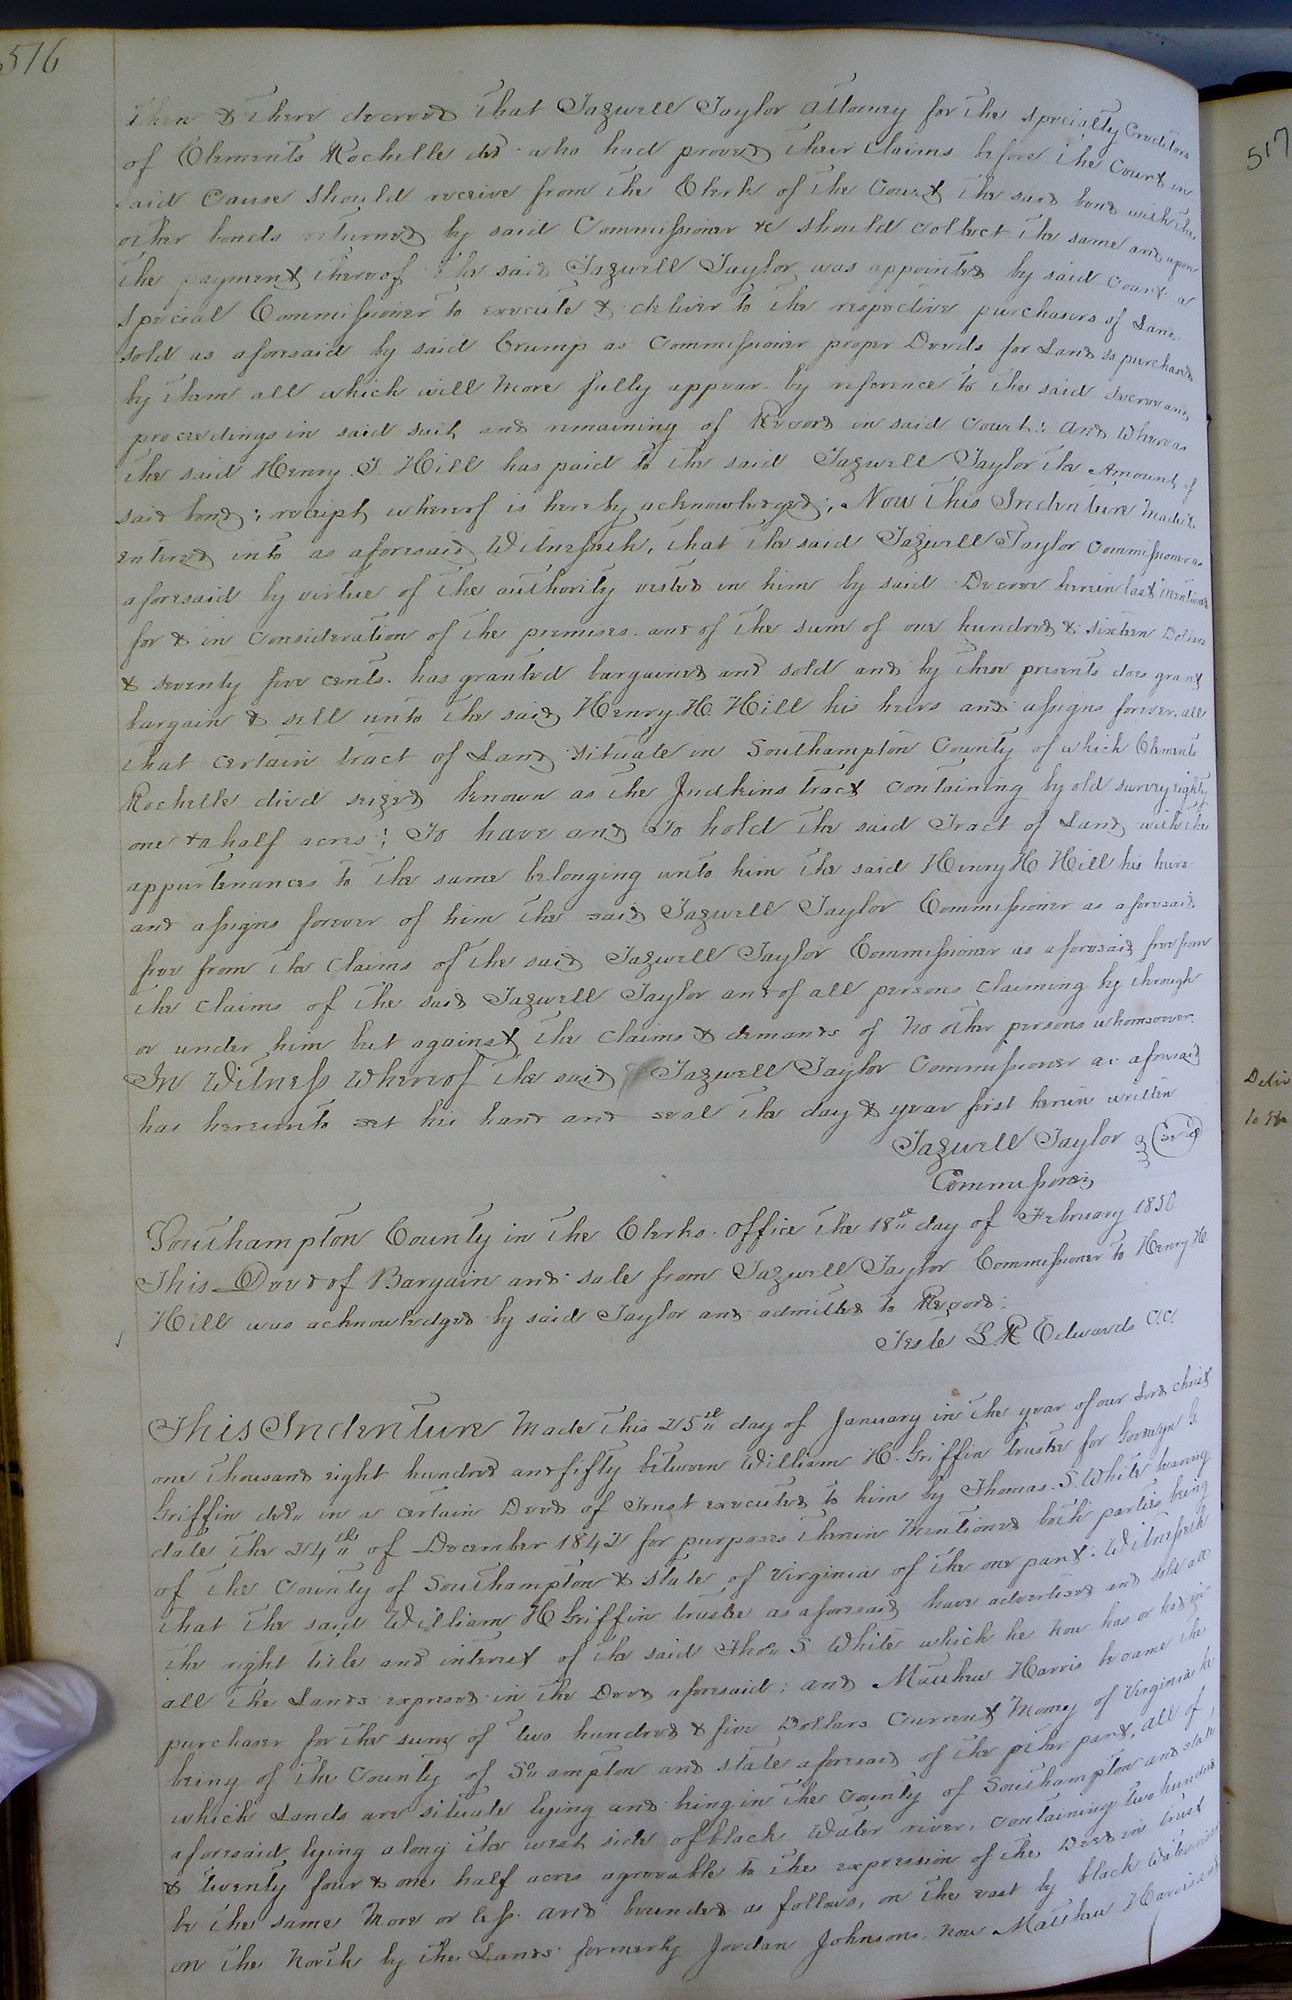 516
Then & there decreed that Tazwell Taylor attorney for the specialty Creditors
of Clements Rochelle decd who had proved their claims before the Court in
said Cause should receive from the Clerk of the Court the said bond with the
other bonds returned by said Commissioner &c should collect the same and upon
the payment thereof the said Tazwell Taylor was appointed by said Court a
special Commissioner to execute & deliver to the respective purchasers of Land
sold as aforesaid by said Crump as Commissioner proper Deeds for Land so purchased
by them all which will more fully appear by reference to the said decree and
proceedings in said suit, and remaining of Record in said Court: and whereas
the said Henry T. Hill has paid to the said Tazwell Taylor the Amount of
said bond; receipt whereof is hereby acknowledged; Now this Indenture made &
entered into as aforesaid, Witnesseth, that the said Tazwell Taylor Commissioner as
aforesaid by virtue of the authority vested in him by said Decree herein last mentioned
for & in consideration of the premises and of the sum of one hundred & sixteen Dollars
& seventy five cents. has granted bargained and sold and by these presents does grant
bargain & sell unto the said Henry H. Hill his heirs and assigns forever all
that certain tract of Land situate in Southampton County of which Clements
Rochelle died seized known as the Judkins tract containing by old survey eighty
one & a half acres; To have and To hold the said Tract of Land with the
appurtenances to the same belonging unto him the said Henry H Hill his heirs
and assigns forever of him the said Tazwell Taylor Commissioner as aforesaid
free from the claims of the said Tazwell Taylor Commissioner as aforesaid free from
the claims of the said Tazwell Taylor and of all persons claiming by through
or under him but against the claims & demands of no other persons whomsoever.
In Witness Whereof the said Tazwell Taylor Commissioner as aforesaid
has hereunto set his hand and seal the day & year first herein written
Tazwell Taylor {Seal}
Commissioner
Southampton County in the Clerks Office the 18th day of February 1850
This Deed of Bargain and sale from Tazwell Taylor Commissioner to Henry H.
Hill was acknowledged by said Taylor and admitted to Record:
Teste L. R Edwards C.C.
This Indenture Made this 25th day of January in the year of our Lord christ
one thousand eight hundred and fifty between William H. Griffin trustee for G.
Griffin decd. in a certain Deed of Trust executed to him by Thomas. S. White bearing
date the 24th of December 1842 for purposes therein mentioned both parties being
of the County of Southampton & state of Virginia of the one part. Witnesseth
that the said William H Griffin trustee as aforesaid have advertised and sold all
the right title and interest of the said Thos. S White which he now has or had in
all the Lands expresed in the Deed aforesaid: and Matthew Harris became the
purchaser for the sum of two hundred & five Dollars current Money of Virginia he
being of the County of So.ampton and state aforesaid of the other part, all of
which Lands are situate lying and being in the County of Southampton and state
aforesaid, lying along the west side of black Water river, containing two hundred
& twenty four & one half acres agreeable to the expression of the Deed in trust
be the same more or less. and bounded as follows, on the east by black Water river
on the North by the Lands formerly Jordan Johnsons now Matthew Harris's
517
to